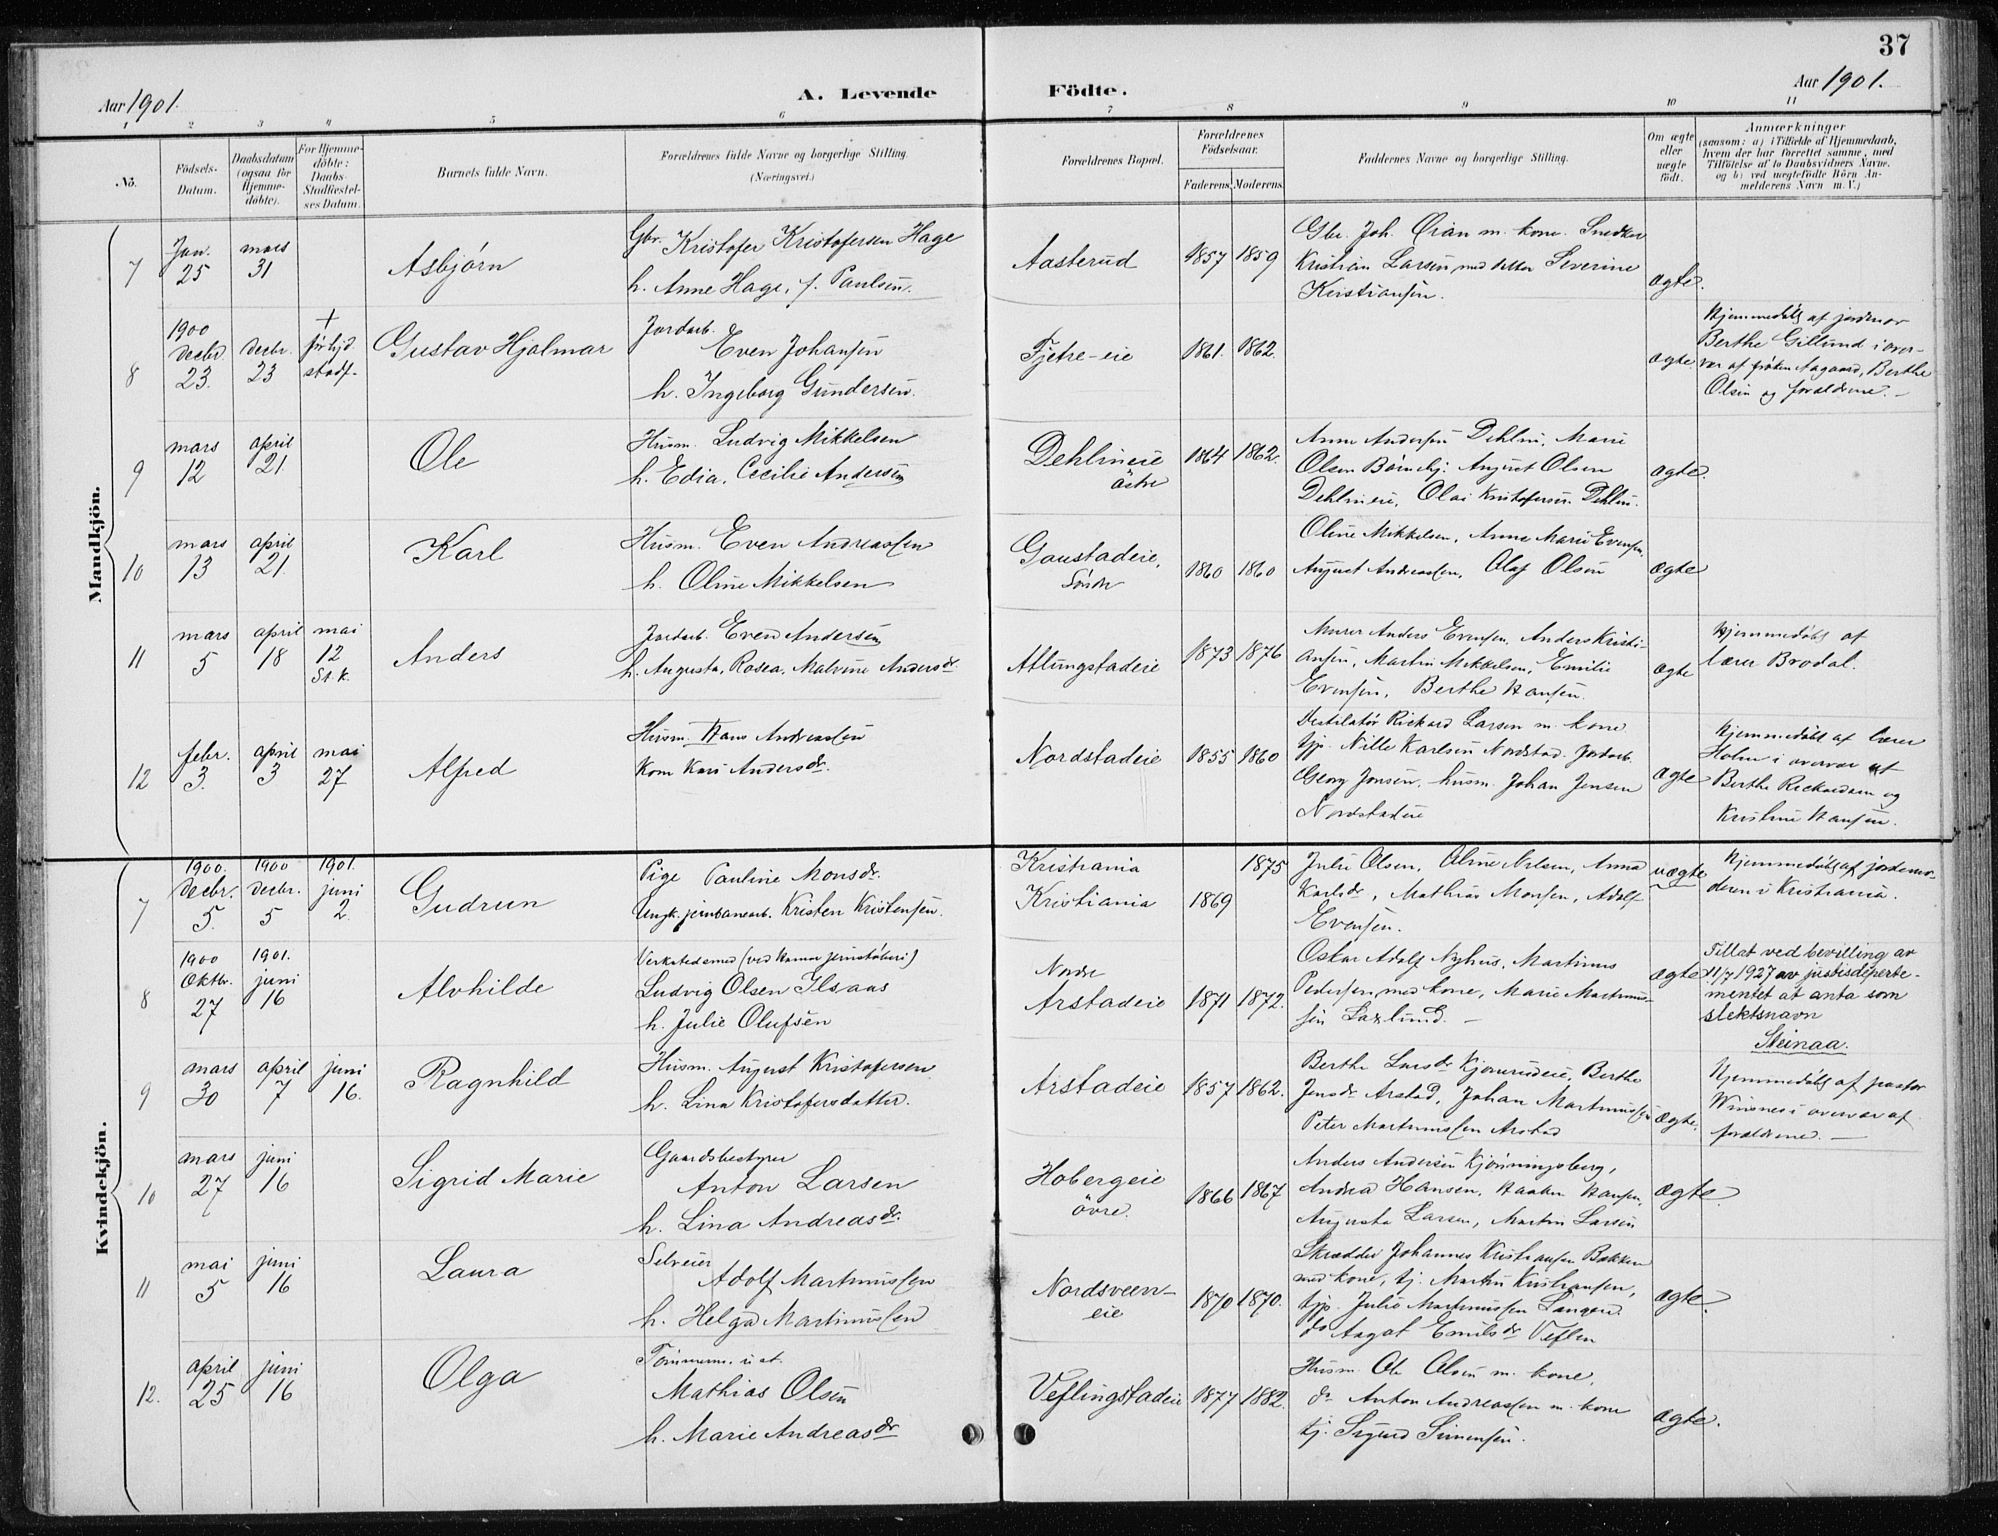 37
Aar 1901.
A. Levende Födte.
Aar 1901.
1 2 3 4 5 6 7 8 9 10 11
No.
Födsels-Datum.
Daabsdatum (ogsaa for Hjemme-döbte).
For Hjemme-döbte: Daabs-Stadfæstel-ses Datum.
Barnets fulde Navn.
Forældrenes fulde Navne og borgerlige Stilling. (Næringsvei.)
Forældrenes Bopæl.
Forældrenes Födselsaar.
Faderens. Moderens.
Faddernes Navne og borgerlige Stilling.
Om ægte eller uægte födt.
Anmærkninger
(saasom: a) i Tilfælde af Hjemmedaab, hvem der har forrettet samme, med Tilföielse af to Daabsvidners Navne. og b) ved uægtefödte Börn An-melderens Navn m. V.)
Mandkjön.
7
Jan. 25
mars 31
Asbjørn
Gbr. Kristofer Kristofersen Hage
h. Anne Hage, f. Paulsen.
Aasterud
1857 1859
Gbr. Joh. Oran m. kone. Snedker
Kristian Larsen med datter Severine
Kristiansen.
ægte.
8
1900 Decbr 23.
Decbr. 23
+
Gustav Hjalmar
Jordarb.
Even Johansen
h. Ingeborg Gundersen.
Fjetre-eie
1861. 1862.
ægte
Hjemmedøbt af jordmor
Berthe Gillund i over-
vær af frøken Aagaard, Berthe
Olsen og forældrene. –
9
mars 12
april 21
Ole
Husm. Ludvig Mikkelsen
h. Edia, Cecilie Andersen
Dehlineie
östre
1864 1862.
Anne Andersen Dehlin, Marie
Olsen August Olsen
Dehlineie, Olai Kristofersen Dehlin.
ægte.
10
mars 13
april 21.
Karl
Husm. Even Andreassen
h. Oline Mikkelsen
Gaustadeie,
Søndre
1860 1860
Oline Mikkelsen, Anne Marie Evensen,
August Andreassen, Olaf Olsen
ægte
11
mars 5
april 18
mai 12 St. k.
Anders
Jordarb. Even Andersen
h. Augusta, Rosea, Malvine Andersdr.
Atlungstadeie
1873 1876
Murer Anders Evensen, Anders Kristi-
ansen, Martin Mikkelsen, Emilie
Evensen, Berthe Hansen.
ægte
Hjemmedøbt af
lærer Brodal.
12
febr. 3.
april 3
mai 27
Alfred
Husm. Hans Andreassen
Kone Kari Andersdr.
Nordstadeie
1855 1860
Destilatør Rickard Larsen m. kone
tjp. Nille Karlsen Nordstad. Jordarb.
Georg Jonsen, husm. Johan Jensen
Nordstadeie
ægte
Hjemmedøbt af lærer
Holm i overvær af
Berthe Rickardsen og
Kristine Hansen.
Kvindekjön.
7
1900. Decbr. 5.
1900 decbr. 5
1901. juni 2.
Gudrun
Pige Pauline Monsdr.
Ungk. jernbanearb. Kristen Kristensen.
Kristiania
Kristiania
1869 1875
Julie Olsen, Oline Nilsen, Anna
Karlsdr, Mathias Monsen, Adolf
Evensen.
uægte
Hjemmedøbt af jordemo-
deren i Kristiania.
8
1900 Oktbr. 27
1901. juni 16
Alvhilde
Verkstedsmed (ved Hamar jernstøberi)
Ludvig Olsen Ilsaas
h. Julie Olufsen
Nordre
Arstadeie
1871 1872.
Oskar Adolf Nyhus, Martinus
Pedersen, med kone, Marie Martinus-
sen Laxlund. –
ægte
Tillat ved bevilling av
11/7 1927 av justisdeparte-
mentet at anta som
slektsnavn
Steinaa.
9
mars 30
april 7
juni 16.
Ragnhild
Husm. August Kristofersen
h. Lina Kristofersdatter.
Arstadeie
1857 1862.
Berthe Larsdr Kjonerudeie, Berthe
Jensdr Arstad, Johan Martinussen
Peter Martinussen Arstad
ægte.
Hjemmedøbt af pastor
Winsnes i overvær af
forældrene. –
10
mars 27
juni 16
Sigrid Marie
Gaardsbestyrer
Anton Larsen
h. Lina Andreasdr.
Hobergeie
övre.
1866 1867
Anders Andersen Kjonningsberg,
Andrea Hansen, Haakon Hansen,
Augusta Larsen, Martin Larsen
ægte
11
mai 5
juni 16
Laura
Selveier
Adolf Martinussen
h. Helga Martinussen
Nordsveen-
eie
1870 1870.
Skrædder Johannes Kristiansen Bakken
med kone, tj. Martin Kristiansen,
tjp. Julie Martinussen
do Aagot Emilsdr Veflen
ægte.
12.
april 25
juni 16
Olga
Tømmerm.
Mathias Olsen
h. Marie Andreasdr
Veflingstadeie
1877 1882.
Husm. Ole Olsen m. kone,
do Anton Andreassen m. kone
tj. Sigurd Simensen.
ægte.